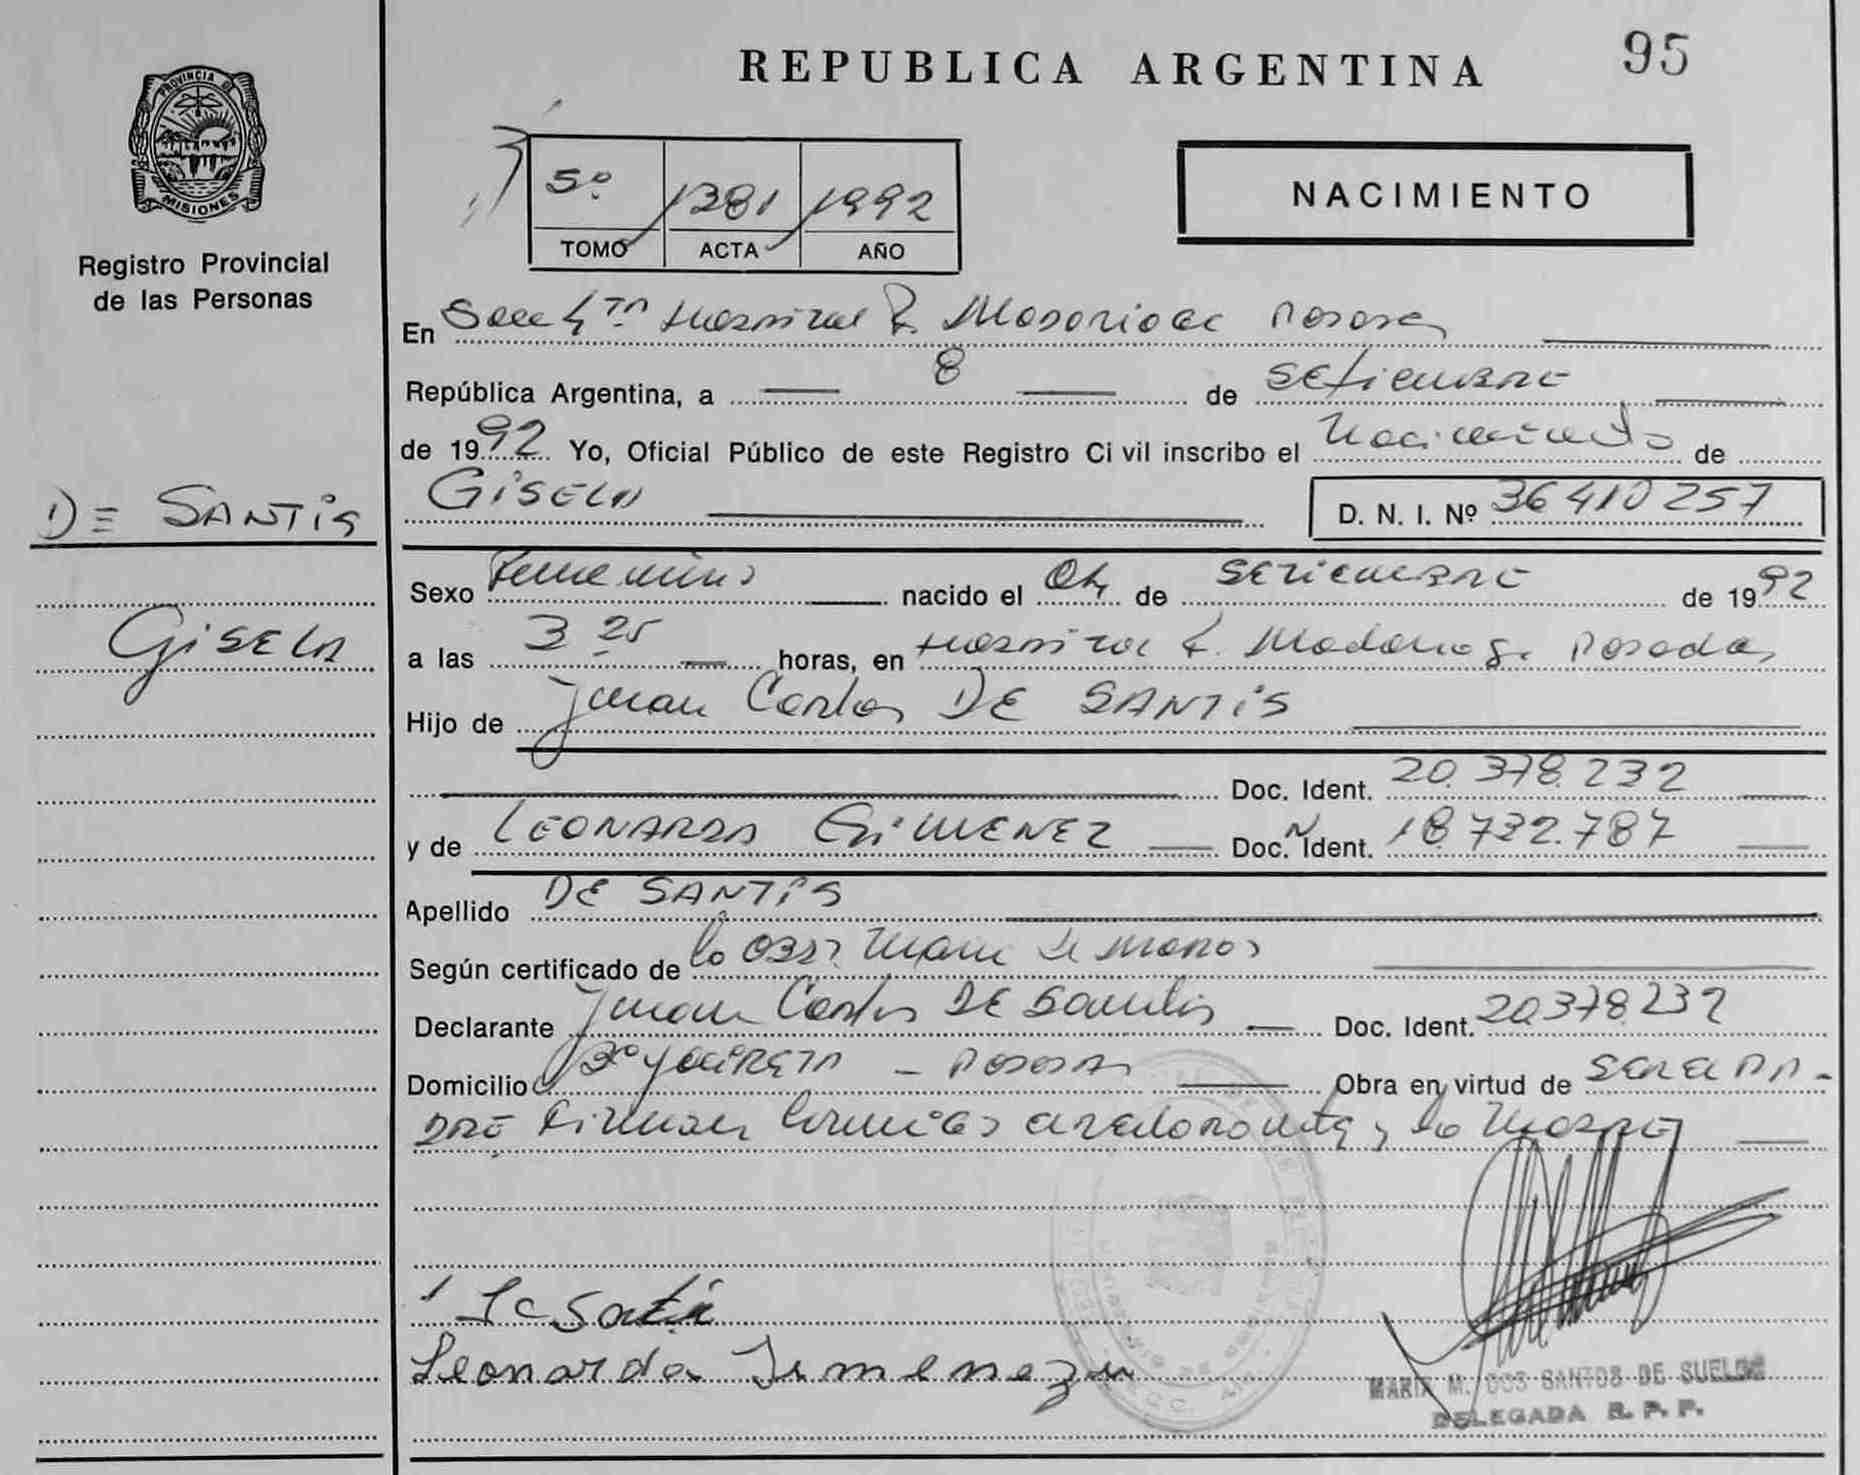 REPUBLICA ARGENTINA
95
PROVINCIA DE
MISIONES
Registro Provincial
de las Personas
5º 1381 1992
TOMO ACTA AÑO
NACIMIENTO
En Hospital R. Madariaga Posadas
República Argentina, a 8 de setiembre
de 1992 Yo, Oficial Público de este Registro Civil inscribo el Nacimiento de
DE SANTIS
GISELA
D. N. I. Nº 36410257
Sexo Femenino nacido el 04 de SETIEMBRE de 1992
GISELA
a las 3 25 horas, en Hospital R. Madariaga Posadas
Hijo de Juan Carlos DE SANTIS
Doc. Ident. 20.378.232
y de LEONARDA GIMENEZ Doc. Ident. 18.732.787
Apellido DE SANTIS
Según certificado de la Obst.
Declarante Juan Carlos DE Santis Doc. Ident. 20378232
Domicilio Bº YACIRETA - POSADAS Obra en virtud de SER EL PA-
DRE Firman y la MADRE
Leonarda Jimenez
MARIA M. DOS SANTOS DE
DELEGADA R. P. P.